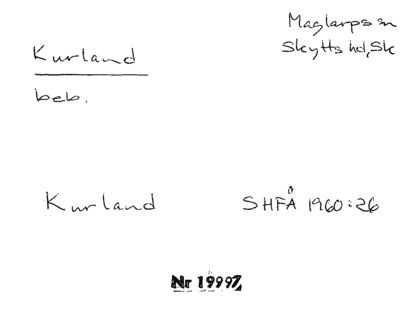 Maglarps sn
Skytts hd, Sk
Kurland
beb.
Kurland
SHFÅ 1960:26
Nr 19997